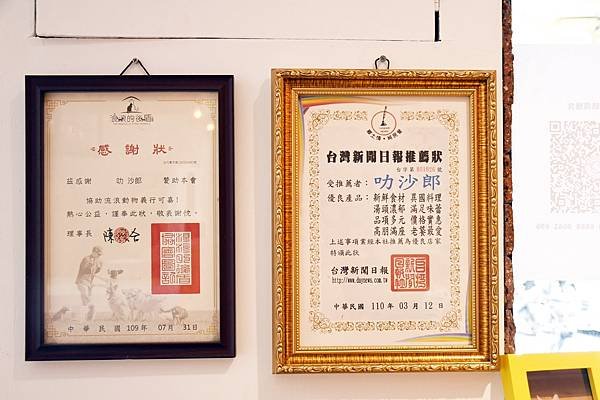 浪浪的後盾
感謝狀
茲感謝 叻沙郎 贊助本會
協助流浪動物義行可嘉！
熱心公益，謹奉此狀，敬表謝忱。
理事長
中華民國 109年 07月 31日
台灣新聞日報推薦狀
台字第 801026 號
受推薦者：叻沙郎
優良產品：新鮮食材 異國料理
湯頭濃郁 滿足味蕾
品項多元 價格實惠
高朋滿座 老饕最愛
上述事項業經本社推薦為優良店家
特頒此狀
台灣新聞日報
http://www.daynews.com.tw
中華民國 110年 03月 12日